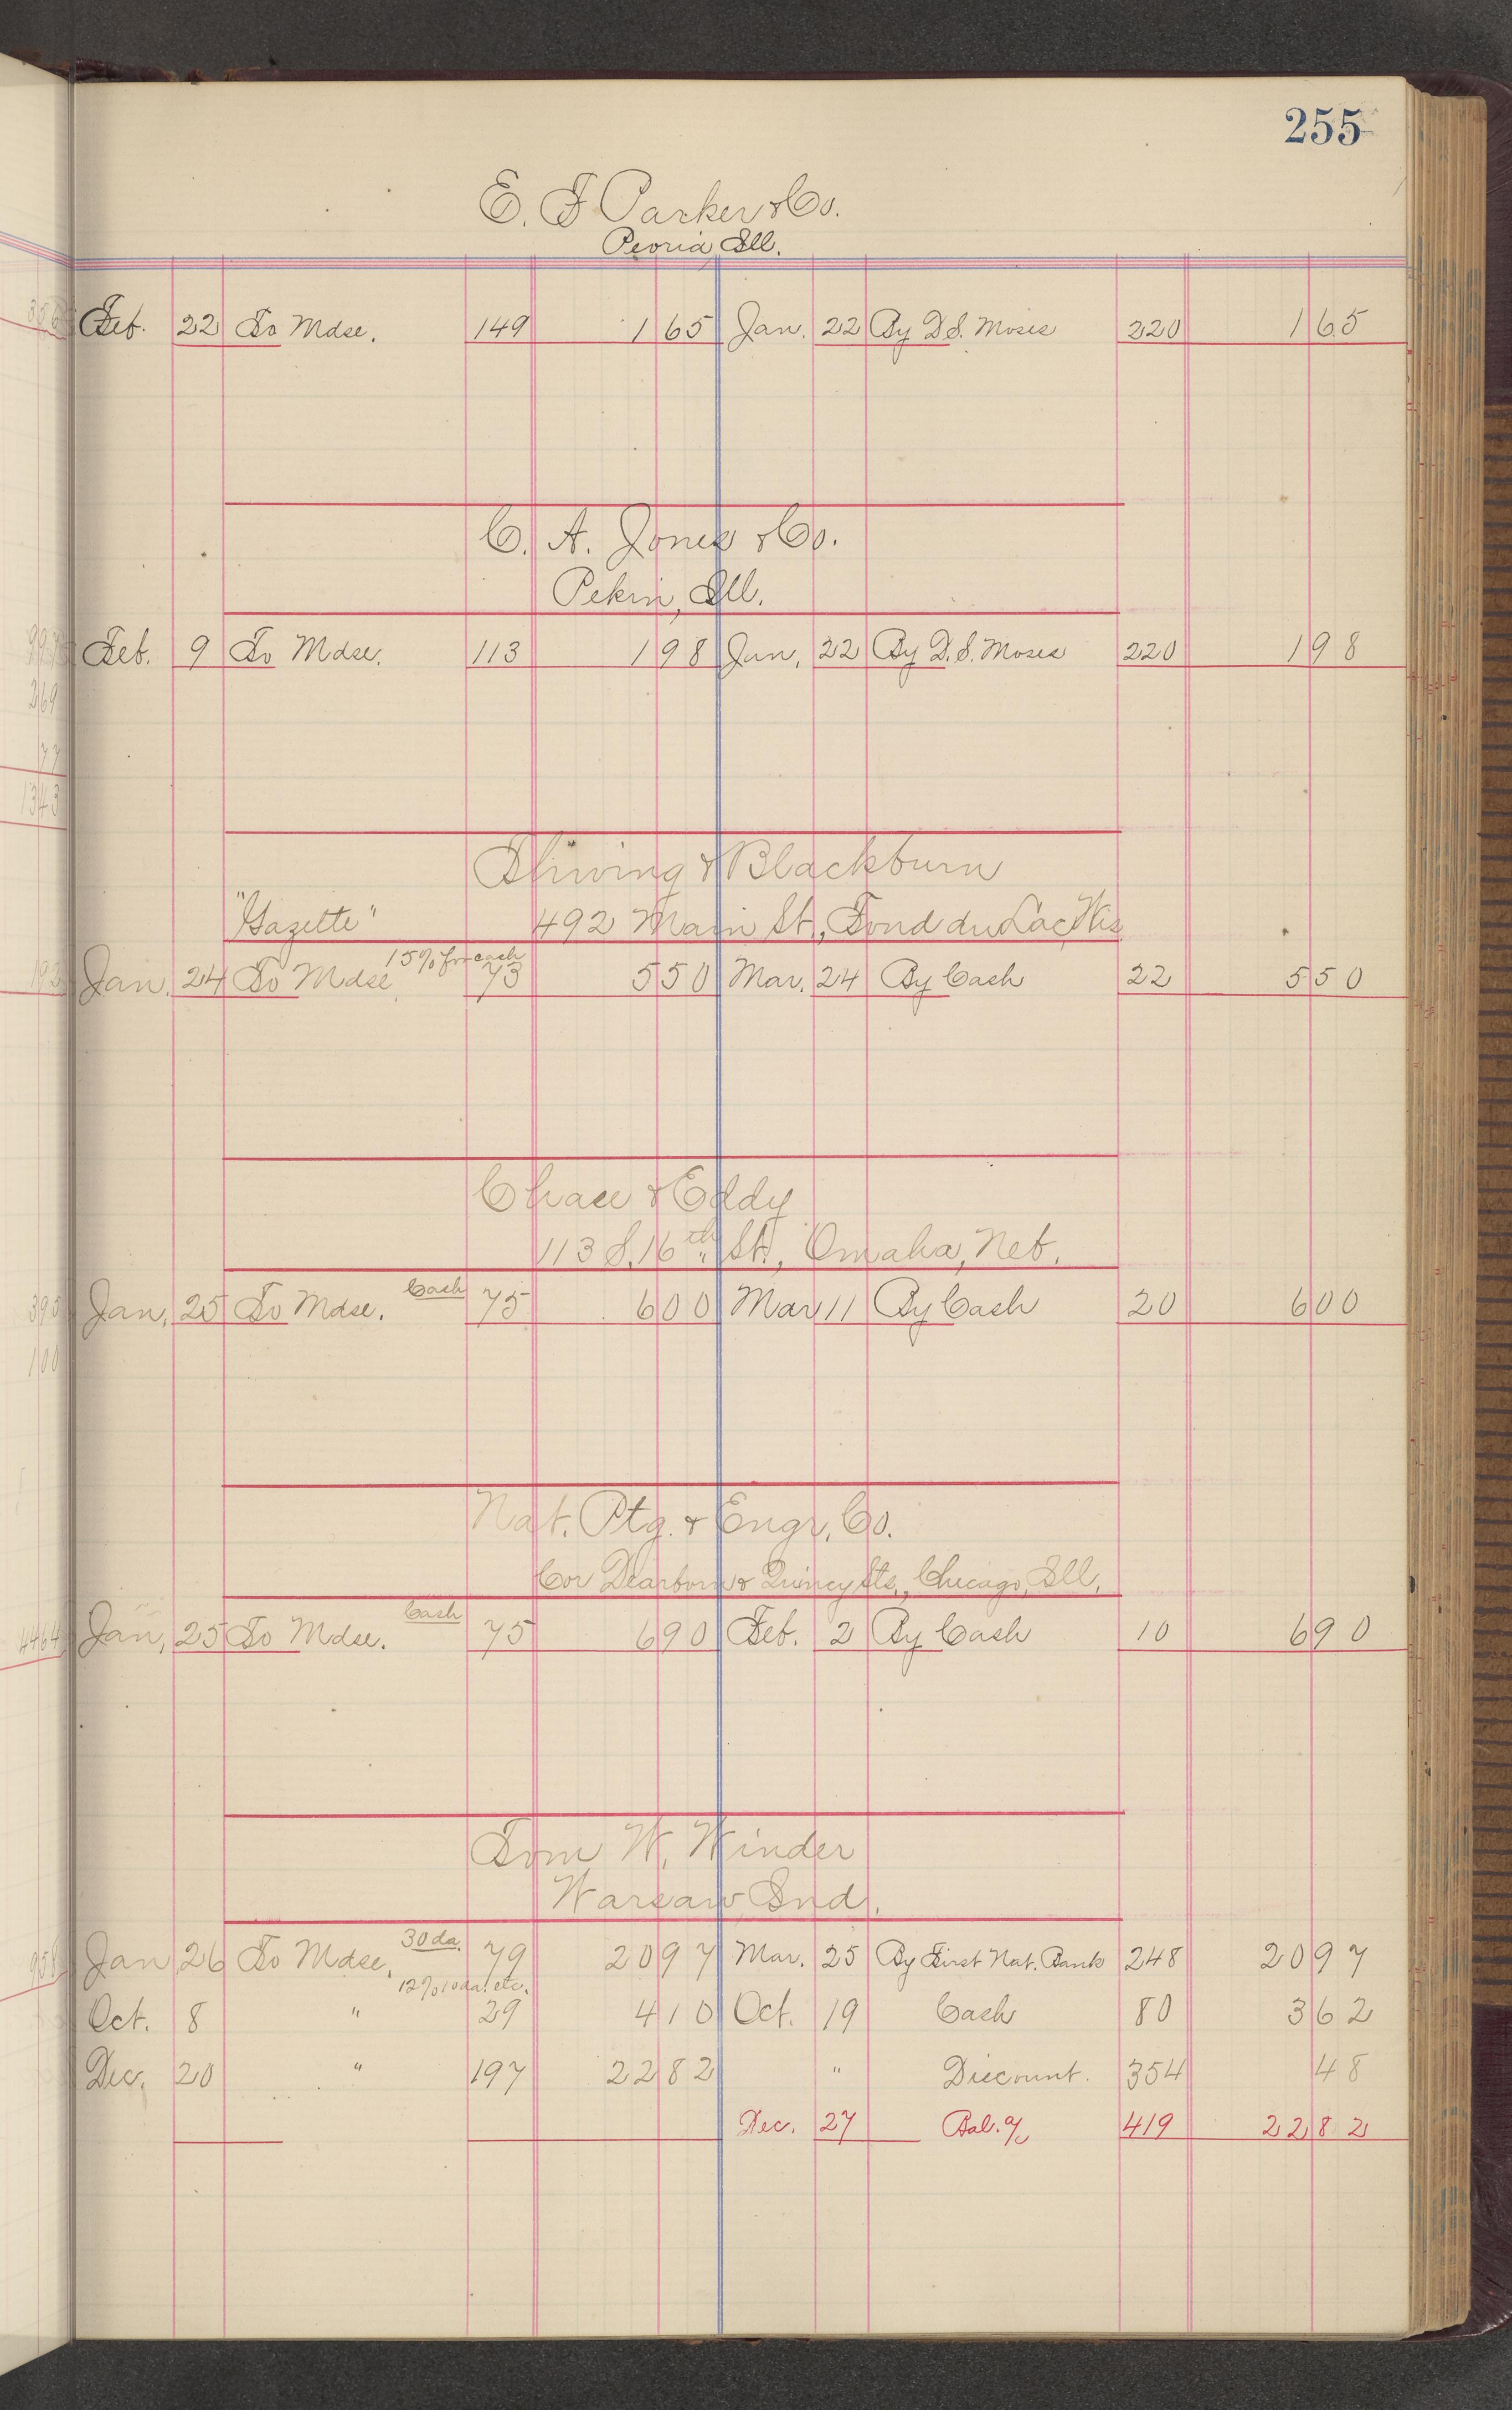 255
E. F Parker & Co.
Peoria Ill.
Feb. 22 To Mdse. 149 1 65 Jan. 22 By D. S. Moses 220 1 65
C. A. Jones & Co.
Pekin, Ill.
Feb. 9 To Mdse. 113 1 98 Jan. 22 By D. S. Moses 220 1 98
269
77
1343
& Blackburn
"Gazette" 492 Main St., Fond du Lac, Wis
15% for cash
Jan. 24 To Mdse. 73 5 50 Mar. 24 By Cash 22 5 50
Chase & Eddy
113 S. 16th St., Omaha, Neb.
Cash
Jan. 25 To Mdse. 75 6 00 Mar 11 By Cash 20 6 00
100
Nat. Ptg. & Engr. Co.
Cor Dearborn & Quincy Sts., Chicago, Ill.
Cash
Jan. 25 To Mdse. 75 6 90 Feb. 2 By Cash 10 6 90
Tom W. Winder
Warsaw, Ind.
30 da.
Jan 26 To Mdse. 79 20 97 Mar. 25 By First Nat. Bank 248 20 97
12% 10 da. etc.
Oct. 8 " 29 4 10 Oct. 19 Cash 80 3 62
Dec. 20 " 197 22 82 " Discount. 354 48
Dec. 27 Bal. 419 22 82